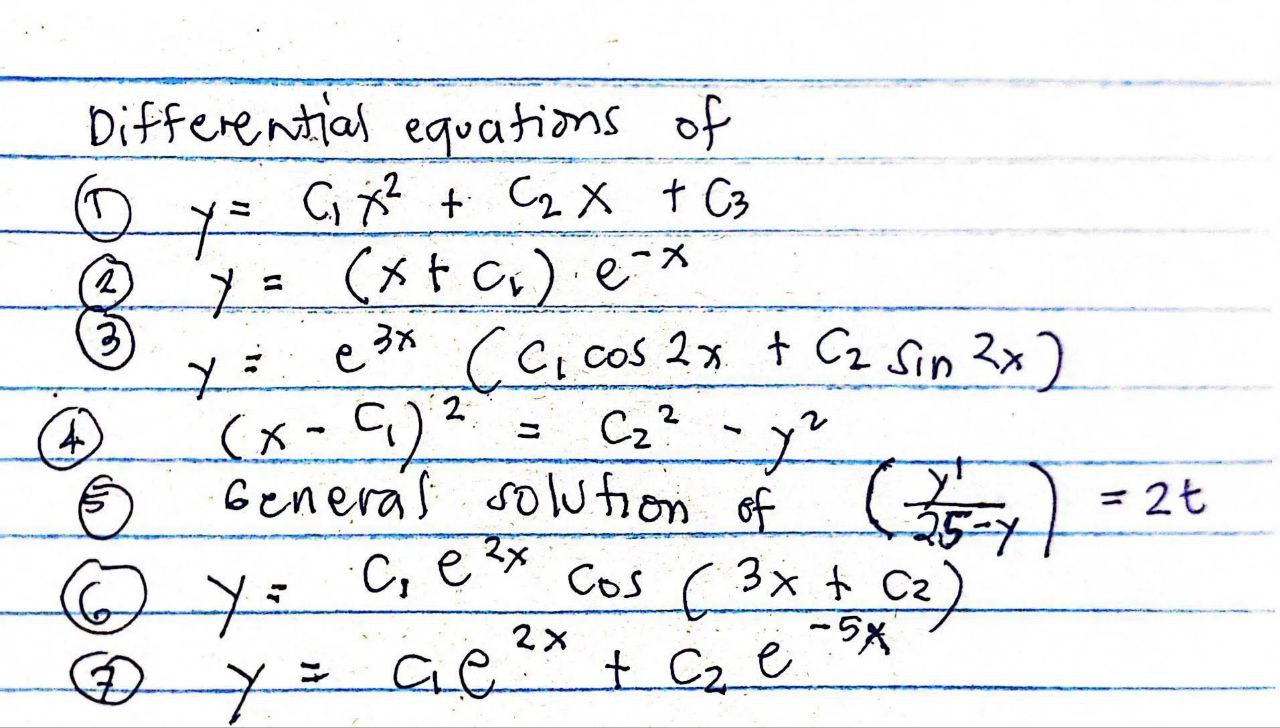 Differential equations of
① y = C₁x² + C₂x + C₃
② y = (x + C₁) e⁻ˣ
③ y = e³ˣ (C₁ cos 2x + C₂ sin 2x)
④ (x - C₁)² = C₂² - y²
⑤ General solution of (y'/(25-y)) = 2t
⑥ y = C₁ e²ˣ cos (3x + C₂)
⑦ y = C₁e²ˣ + C₂ e⁻⁵ˣ